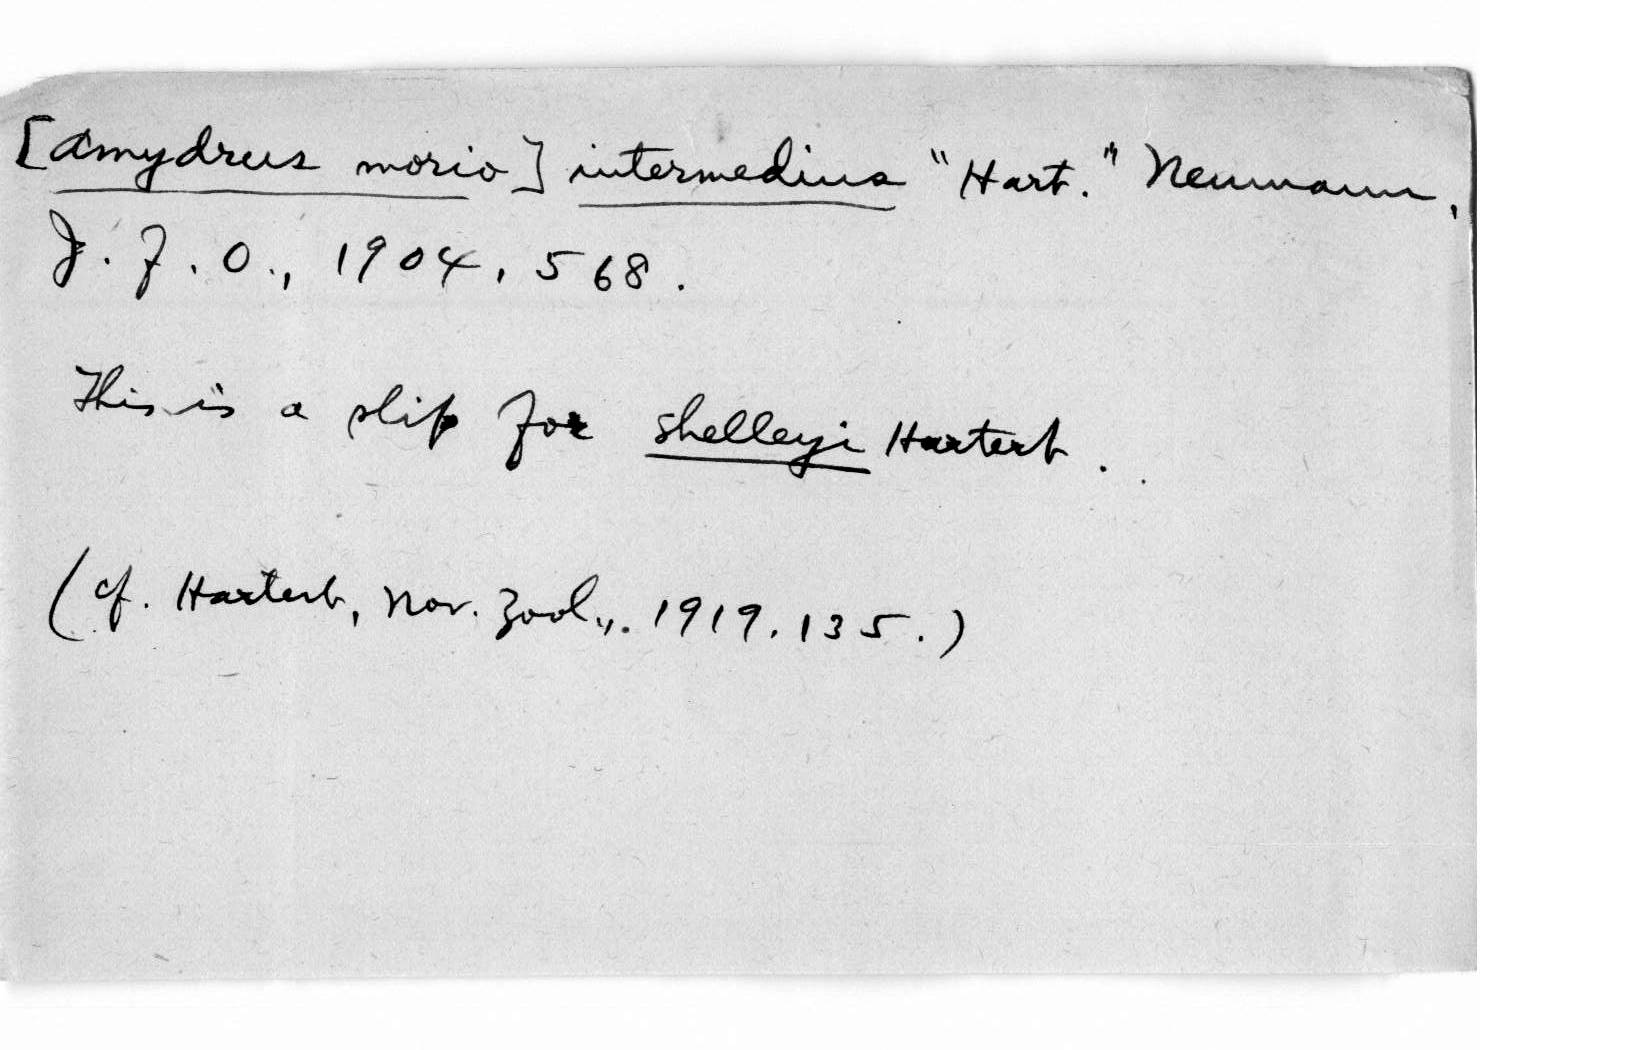 [Amydrus morio] intermedius "Hart." Neumann,
J. f. O., 1904, 568.
This is a slip for shelleyi Hartert.
(cf. Hartert, Nov. Zool., 1919, 135.)